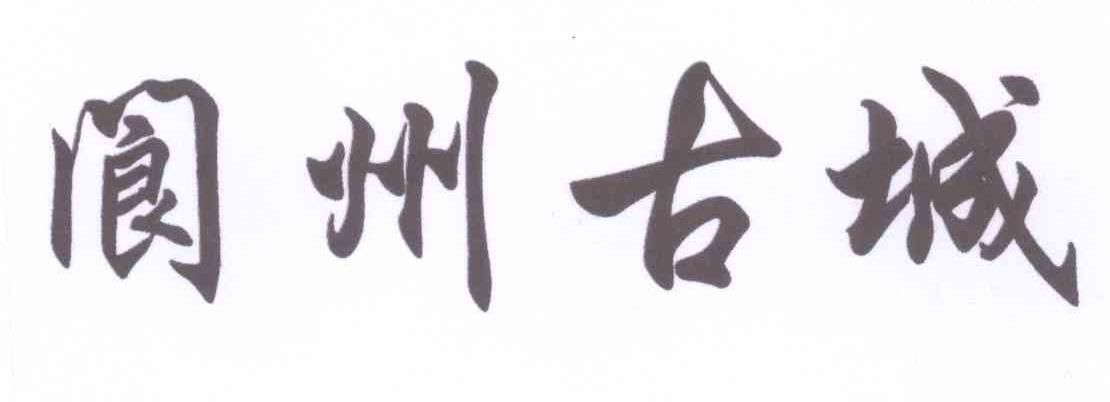 阆州古城